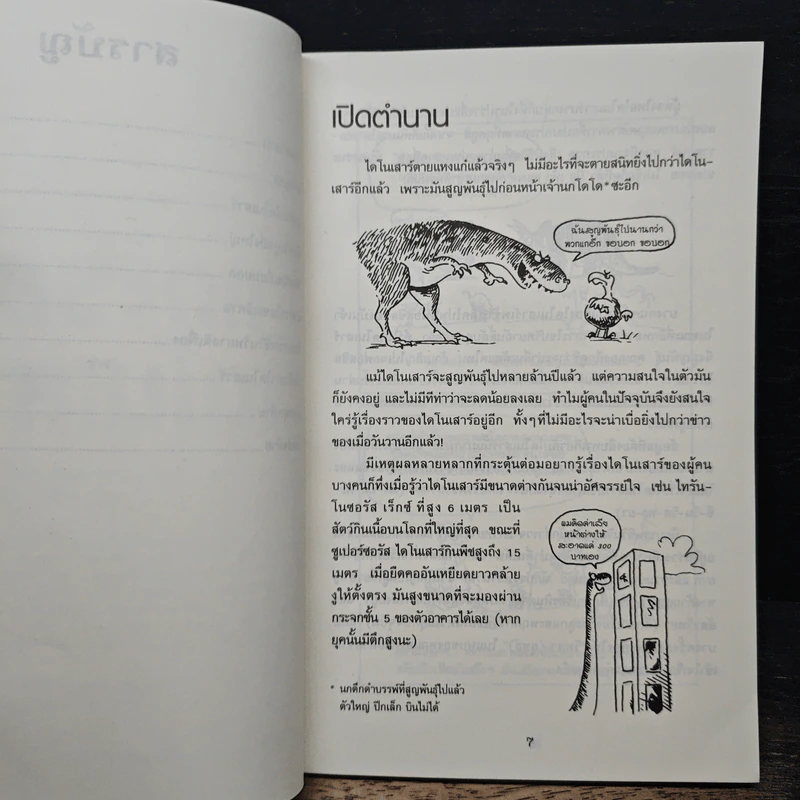 เปิดตำนาน
ไดโนเสาร์ตายแหงแก๋แล้วจริงๆ ไม่มีอะไรที่จะตายสนิทยิ่งไปกว่าไดโน-
เสาร์อีกแล้ว เพราะมันสูญพันธุ์ไปก่อนหน้าเจ้านกโดโด*ซะอีก
ฉันสูญพันธุ์ไปนานกว่า
พวกแกอีก ขอบอก ขอบอก
แม้ไดโนเสาร์จะสูญพันธุ์ไปหลายล้านปีแล้ว แต่ความสนใจในตัวมัน
ก็ยังคงอยู่ และไม่มีทีท่าว่าจะลดน้อยลงเลย ทำไมผู้คนในปัจจุบันจึงยังสนใจ
ใคร่รู้เรื่องราวของไดโนเสาร์อยู่อีก ทั้งๆที่ไม่มีอะไรจะน่าเบื่อยิ่งไปกว่าข่าว
ของเมื่อวันวานอีกแล้ว!
มีเหตุผลหลายหลากที่กระตุ้นต่อมอยากรู้เรื่องไดโนเสาร์ของผู้คน
บางคนก็ทึ่งเมื่อรู้ว่าไดโนเสาร์มีขนาดต่างกันจนน่าอัศจรรย์ใจ เช่น ไทรัน-
โนซอรัส เร็กซ์ ที่สูง 6 เมตร เป็น
สัตว์กินเนื้อบนโลกที่ใหญ่ที่สุด ขณะที่
ซูเปอร์ซอรัส ไดโนเสาร์กินพืชสูงถึง 15
เมตร เมื่อยืดคออันเหยียดยาวคล้าย
งูให้ตั้งตรง มันสูงขนาดที่จะมองผ่าน
กระจกชั้น 5 ของตัวอาคารได้เลย (หาก
ยุคนั้นมีตึกสูงนะ)
ผมคิดค่าเช็ด
หน้าต่างให้
สะอาดแค่ 300
บาทเอง
* นกดึกดำบรรพ์ที่สูญพันธุ์ไปแล้ว
ตัวใหญ่ ปีกเล็ก บินไม่ได้
7